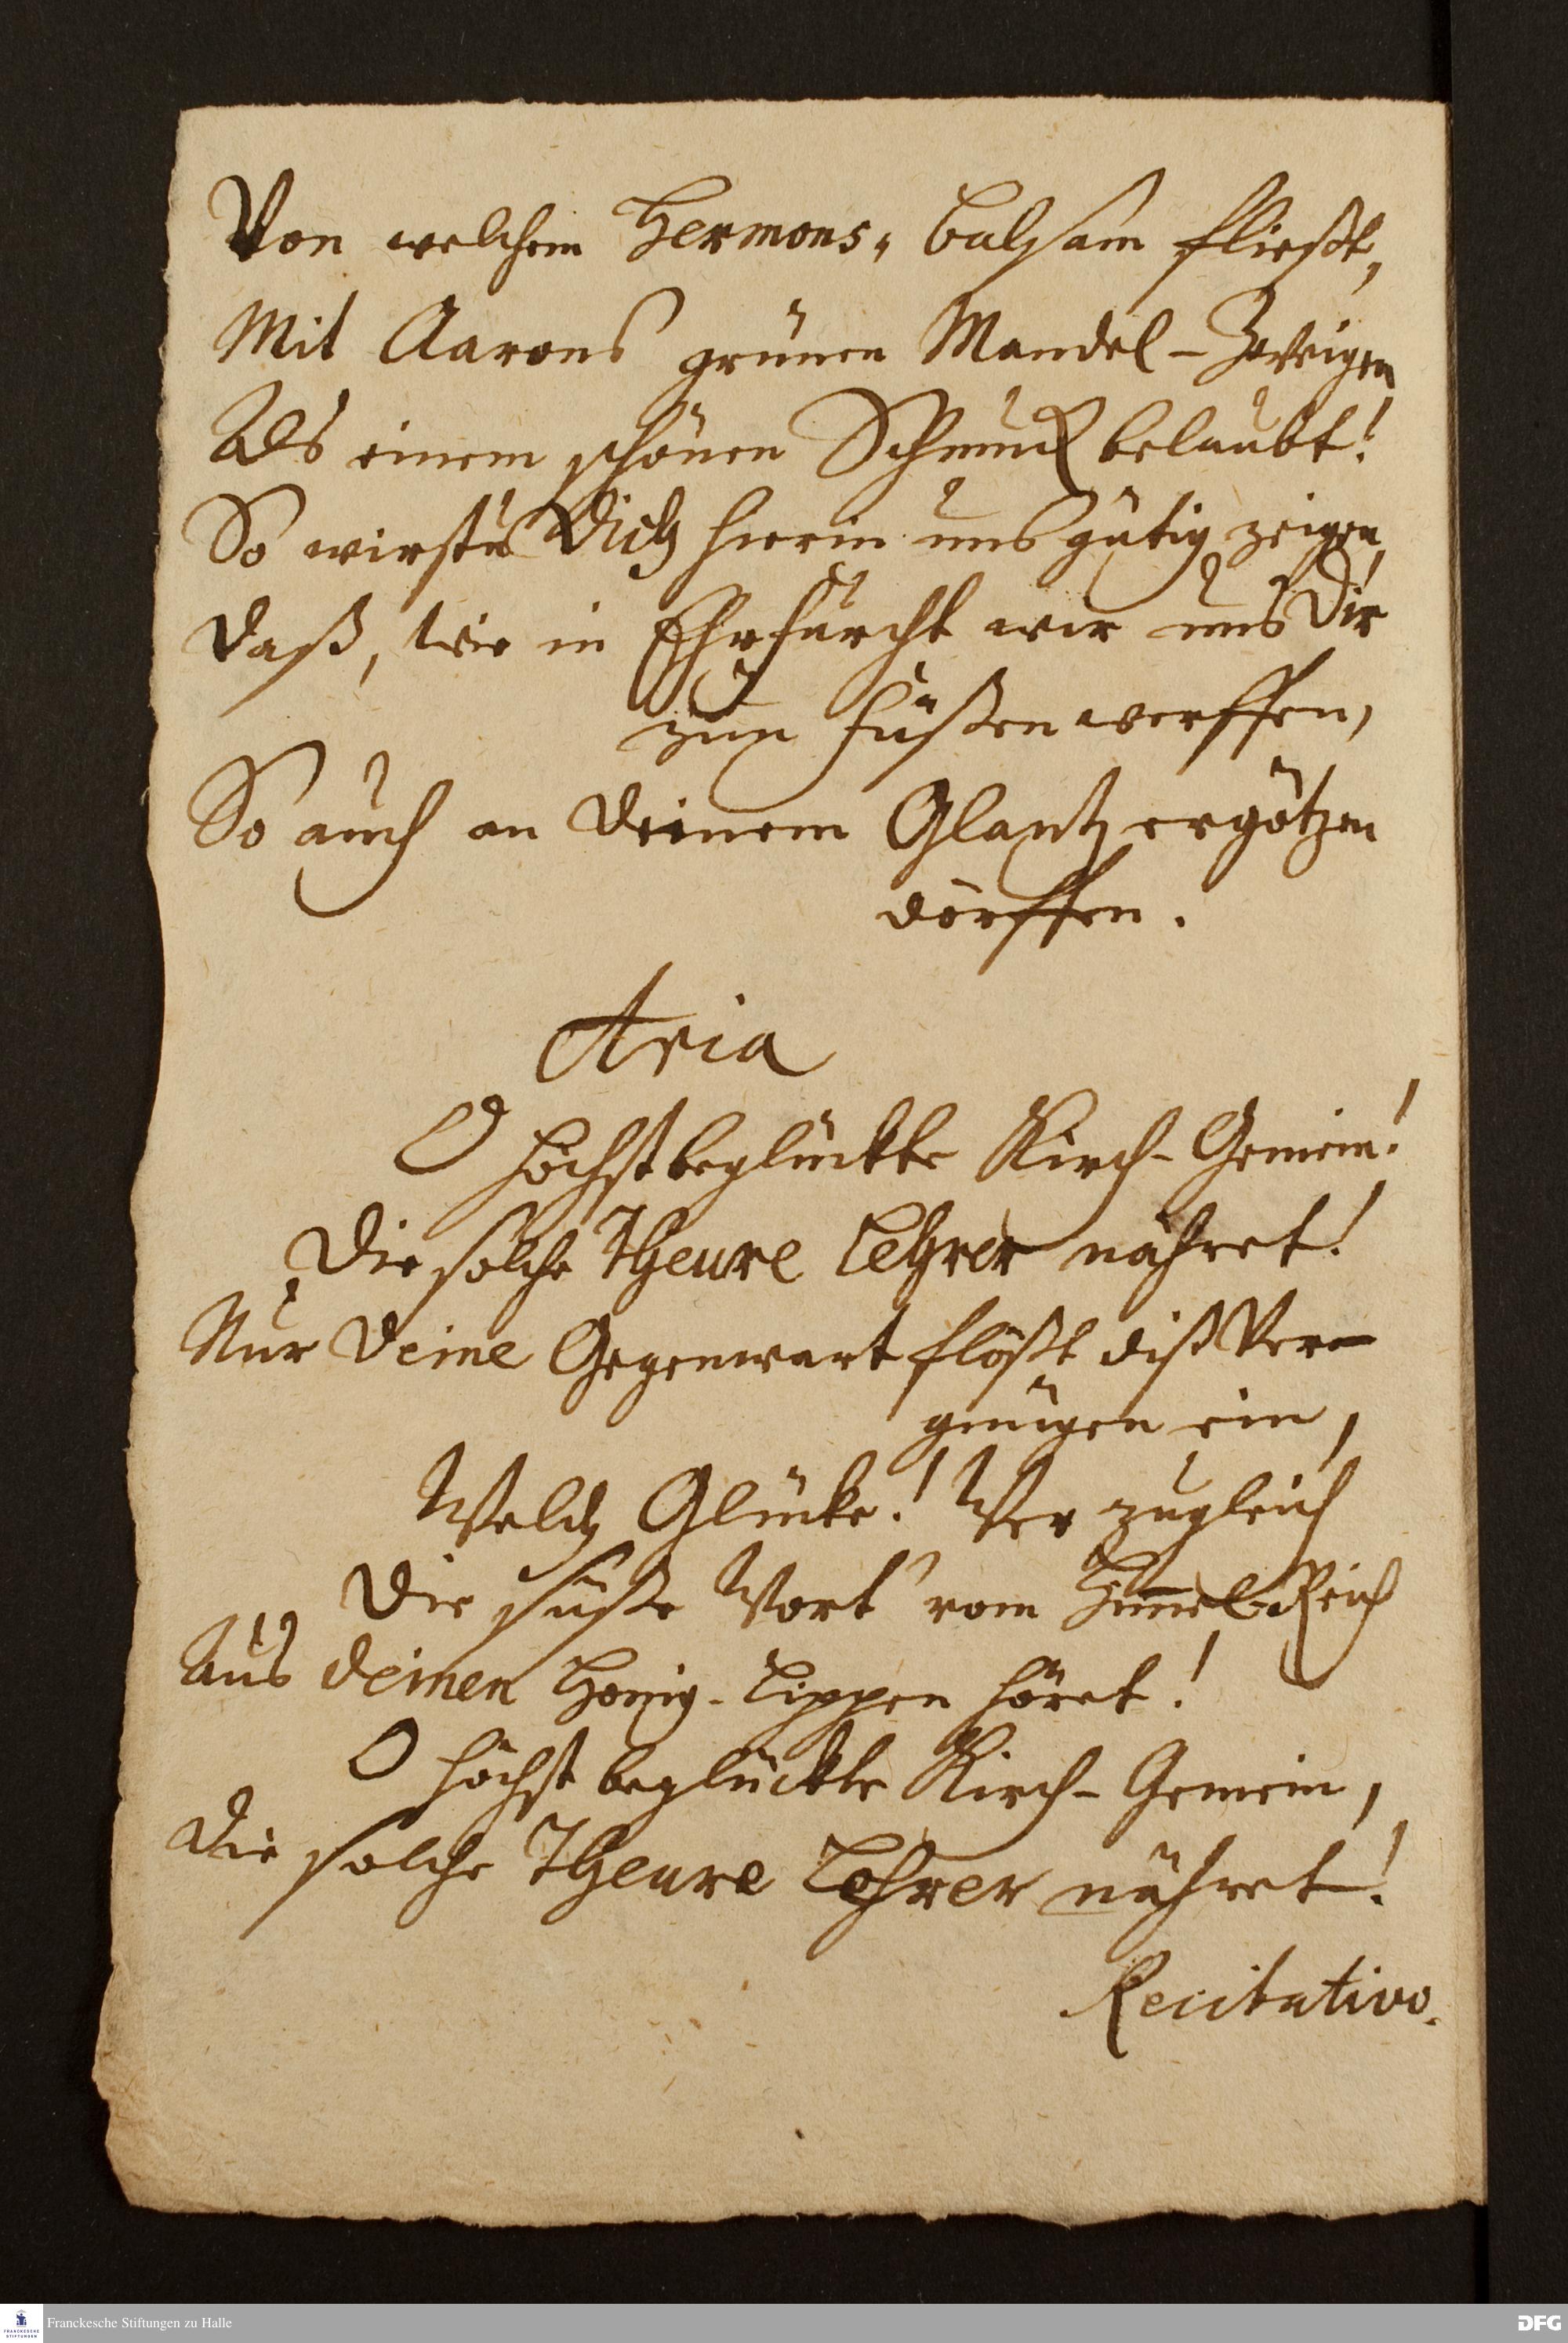 Von welchem Hermons-Balsam fließt,
Mit Aarons grünen Mandel-Zweigen
Als einem schönen Schmuck belaubt!
So wirstu Dich hierin uns gütig zeigen,
daß, wie in Ehrfurcht wir uns Dir
zun Füßen werffen,
So auch an Deinem Glantz ergötzen
dörffen.
Aria
O höchstbeglückte Kirch-Gemein!
Die solche Theure Lehrer nähret!
Nur Deine Gegenwart flößt diß Ver-
gnügen ein,
Welch Glücke! Wer zugleich
Die süße Wort vom Him̄el-Reich
Aus deinen Honig-Lippen höret!
O höchst beglückte Kirch-Gemein,
Die solche Theure Lehrer nähret!
Recitativo.
Franckesche Stiftungen zu Halle
FRANCKESCHE
STIFTUNGEN
DFG